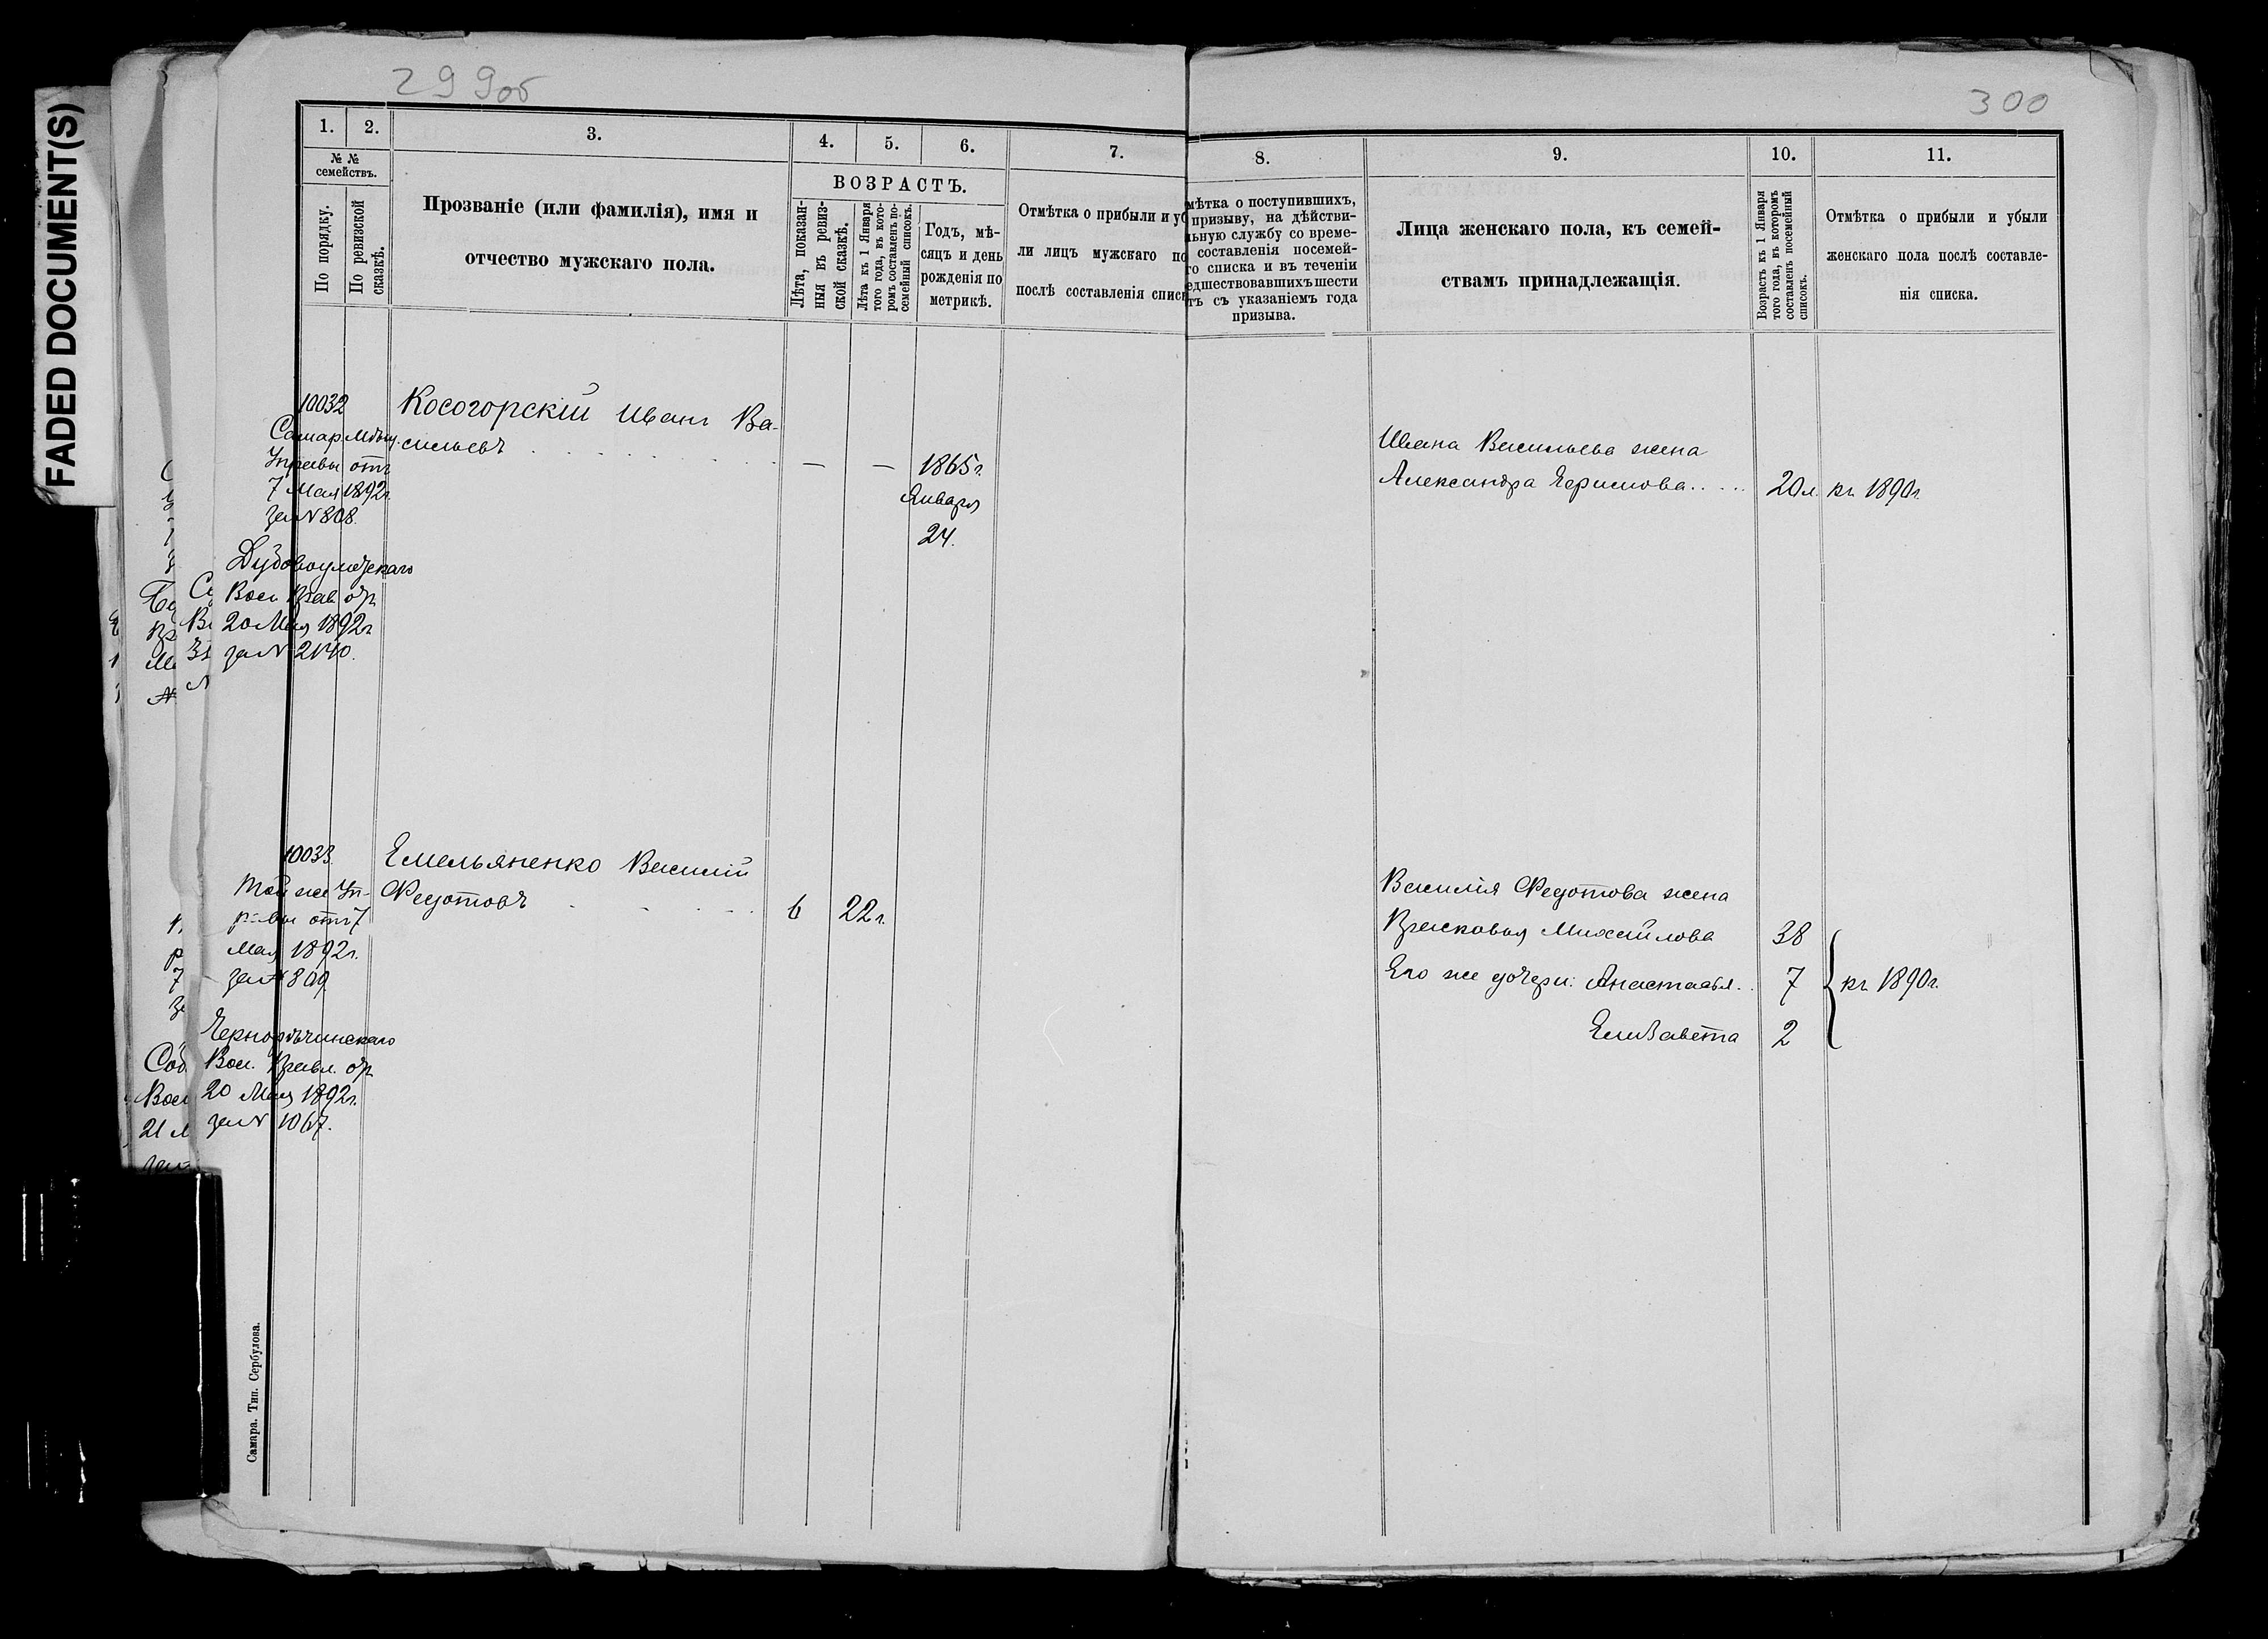 FADED DOCUMENT(S)
299об
300
1.
2.
3.
4.
5.
6.
7.
8.
9.
10.
11.
№ №
семействъ.
По порядку.
По ревизской
сказкѣ.
Прозваніе (или фамилія), имя и
отчество мужскаго пола.
ВОЗРАСТЪ.
Лѣта, показан-
ныя въ ревиз-
ской сказкѣ.
Лѣта къ 1 Января
того года, въ кото-
ромъ составленъ по-
семейный списокъ.
Годъ, мѣ-
сяцъ и день
рожденія по
метрикѣ.
Отмѣтка о прибыли и уб
ли лицъ мужскаго по
послѣ составленія списк
мѣтка о поступившихъ,
призыву, на дѣйстви-
ьную службу со време-
составленія посемей-
го списка и въ теченіи
едшествовавшихъ шести
тъ съ указаніемъ года
призыва.
Лица женскаго пола, къ семей-
ствамъ принадлежащія.
Возрастъ къ 1 Января
того года, въ которомъ
составленъ посемейный
списокъ.
Отмѣтка о прибыли и убыли
женскаго пола послѣ составле-
нія списка.
10032
Самар. Мѣщ.
Управы отъ
7 Мая 1892г.
за N 808.
Вол. Прав. от
20 Мая 1892г
за N 2140.
Косогорскій Иванъ Ва-
сильевъ
— — 1865г.
Января
24.
Ивана Васильева жена
Александра 20л. къ 1890г
10033.
Той же Уп-
равы отъ 7
Мая 1892г.
за N 809
Чернорѣчинскаго
Вол. Правл. от
20 Мая 1892г.
за N 1067.
Емельяненко Василій
Федотовъ 6 22г.
Василія Федотова жена
Прасковья Михайлова 38
Его же дочери: Анастасья. 7 къ 1890г.
Елизавета 2
Самара. Тип. Сербулова.